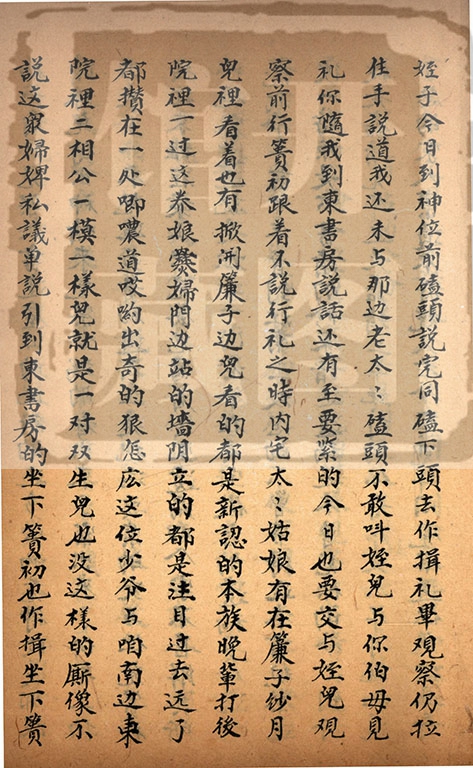 姪子今日到神位前磕頭說完同磕下頭去作揖礼畢觀察仍拉
住手說道我还未与那边老太〻磕頭不敢叫姪兒与你伯母見
礼你隨我到東書房說話还有至要紧的今日也要交与姪兒觀
察前行簣初跟着不說行礼之時內宅太〻姑娘有在簾子紗月
兒裡看着也有掀開簾子边兒看的都是新認的本族晚輩打後
院裡一过这养娘爨婦門边站的墻阴立的都是注目过去远了
都攢在一处唧噥道哎喲出奇的狠怎広这位少爷与咱南边東
院裡二相公一模二樣兒就是一对双生兒也没这樣的厮像不
說这爨婦婢私議单說引到東書房的坐下簣初也作揖坐下簣